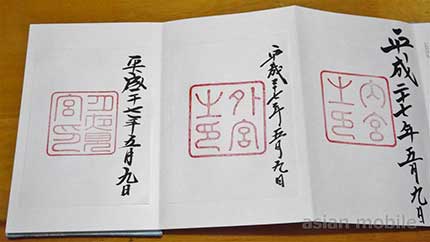 平成二十七年五月九日
内宮
之印
平成二十七年五月九日
外宮
之印
平成二十七年五月九日
月讀
宮印
asian mobile